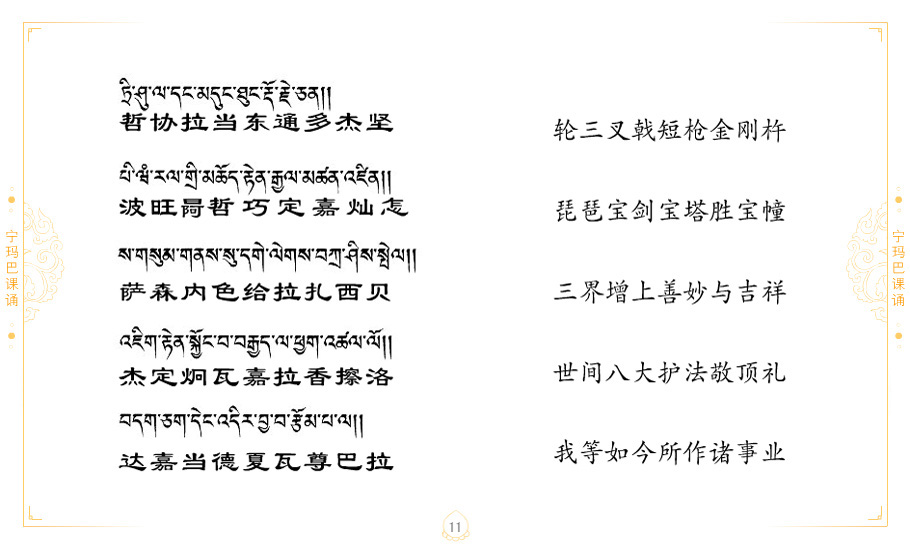 ཏྲི་ཤུ་ལ་དང་མདུང་ཐུང་རྡོ་རྗེ་ཅན།།
哲协拉当东通多杰坚
轮三叉戟短枪金刚杵
པི་ཝཾ་རལ་གྲི་མཆོད་རྟེན་རྒྱལ་མཚན་འཛིན།།
波旺哥哲巧定嘉灿怎
琵琶宝剑宝塔胜宝幢
ས་གསུམ་གནས་སུ་དགེ་ལེགས་བཀྲ་ཤིས་སྤེལ།།
萨森内色给拉扎西贝
三界增上善妙与吉祥
འཇིག་རྟེན་སྐྱོང་བ་བརྒྱད་ལ་ཕྱག་འཚལ་ལོ།།
杰定炯瓦嘉拉香擦洛
世间八大护法敬顶礼
བདག་ཅག་དེང་འདིར་བྱ་བ་རྩོམ་པ་ལ།།
达嘉当德夏瓦尊巴拉
我等如今所作诸事业
宁玛巴课诵
宁玛巴课诵
11